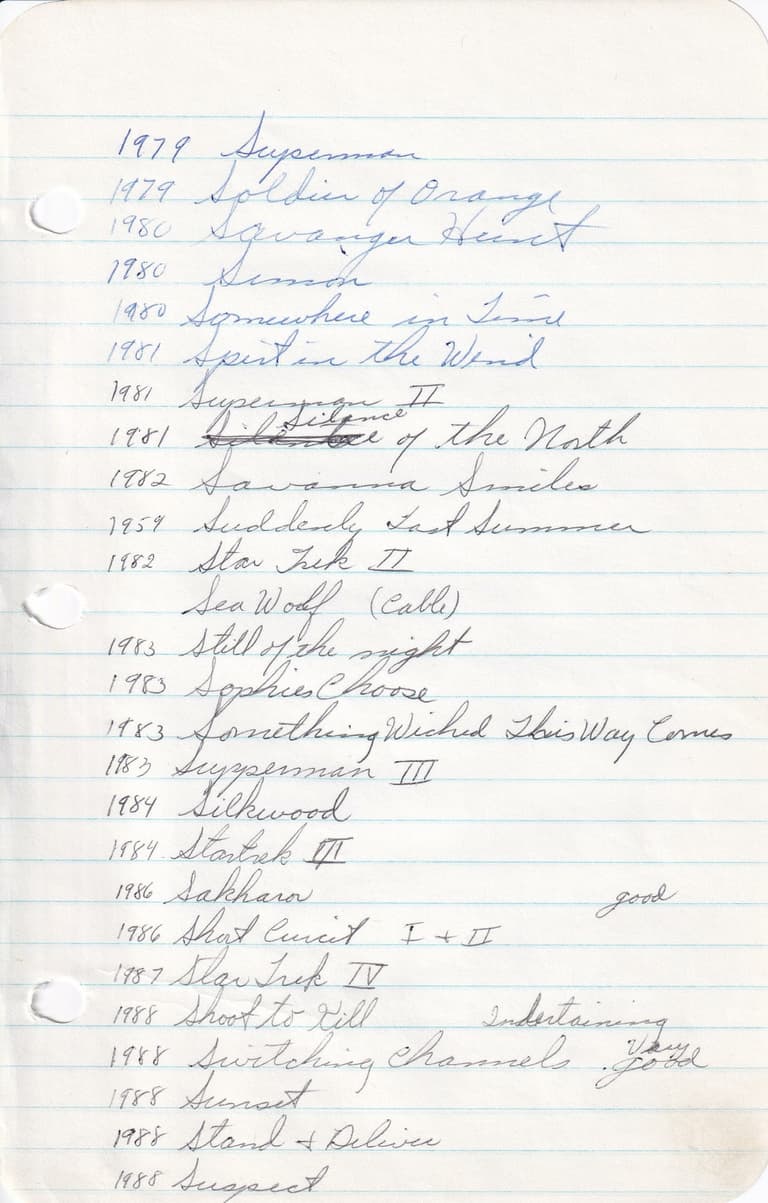 1979 Superman
1979 Soldier of Orange
1980 Savanger Hunt
1980 Simon
1980 Somewhere in Time
1981 Spirit in the Wind
1981 Superman II
Silance
1981 of the North
1982 Savanna Smiles
1959 Suddenly Last Summer
1982 Star Trek II
Sea Wolf (Cable)
1983 Still of the night
1983 Sophies Choose
1983 Something Wicked This Way Comes
1983 Supperman III
1984 Silkwood
1984 Startrek III
1986 Sakharov good
1986 Short Curcit I + II
1987 Star Trek IV
1988 Shoot to Kill Indertaining
1988 Switching Channels Vary good
1988 Sunset
1988 Stand + Deliver
1988 Suspect